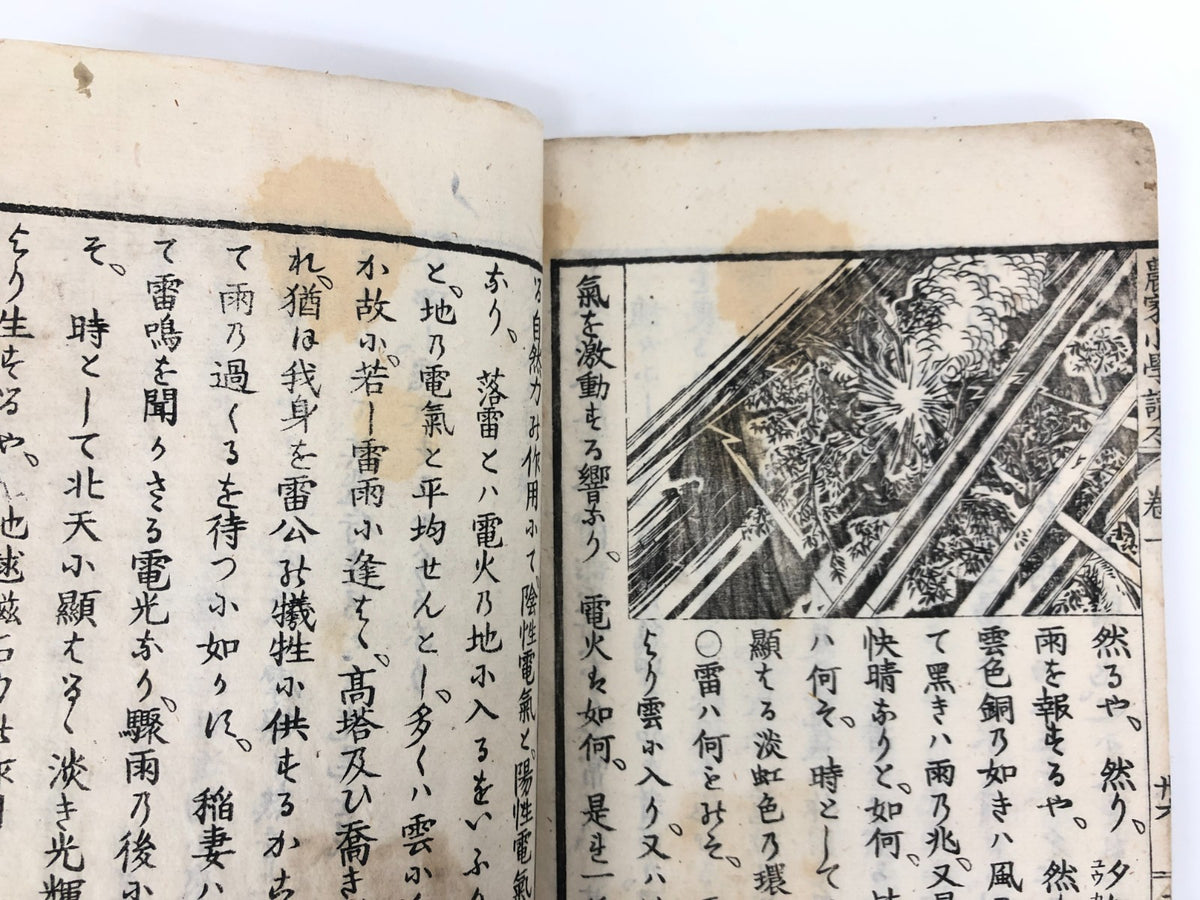 農家小學讀本 卷一
廿六
然るや、然り、夕
ユウカ
雨を報ずるや、然
雲色銅乃如きハ風
て黑きハ雨乃兆、又
快晴なりと、如何、
ハ何そ、時として
顯はる淡虹色乃環
○雷ハ何をかそ、
より雲に入り、又ハ
氣を激動する響なり、電火は如何、是れ一
る自然力の作用にて、陰性電氣と、陽性電氣
なり、落雷とハ電火乃地に入るをいふ
と、地乃電氣と平均せんとし、多くハ雲に
か故に、若し雷雨に逢はゝ、高塔及ひ喬き
れ、猶ほ我身を雷公の犧牲に供するか
て雨乃過くるを待つに如かす、稲妻ハ
て雷鳴を聞かさる電光なり、驟雨乃後に
そ、時として北天に顯はるゝ淡き光輝
より生するや、地球磁石力の